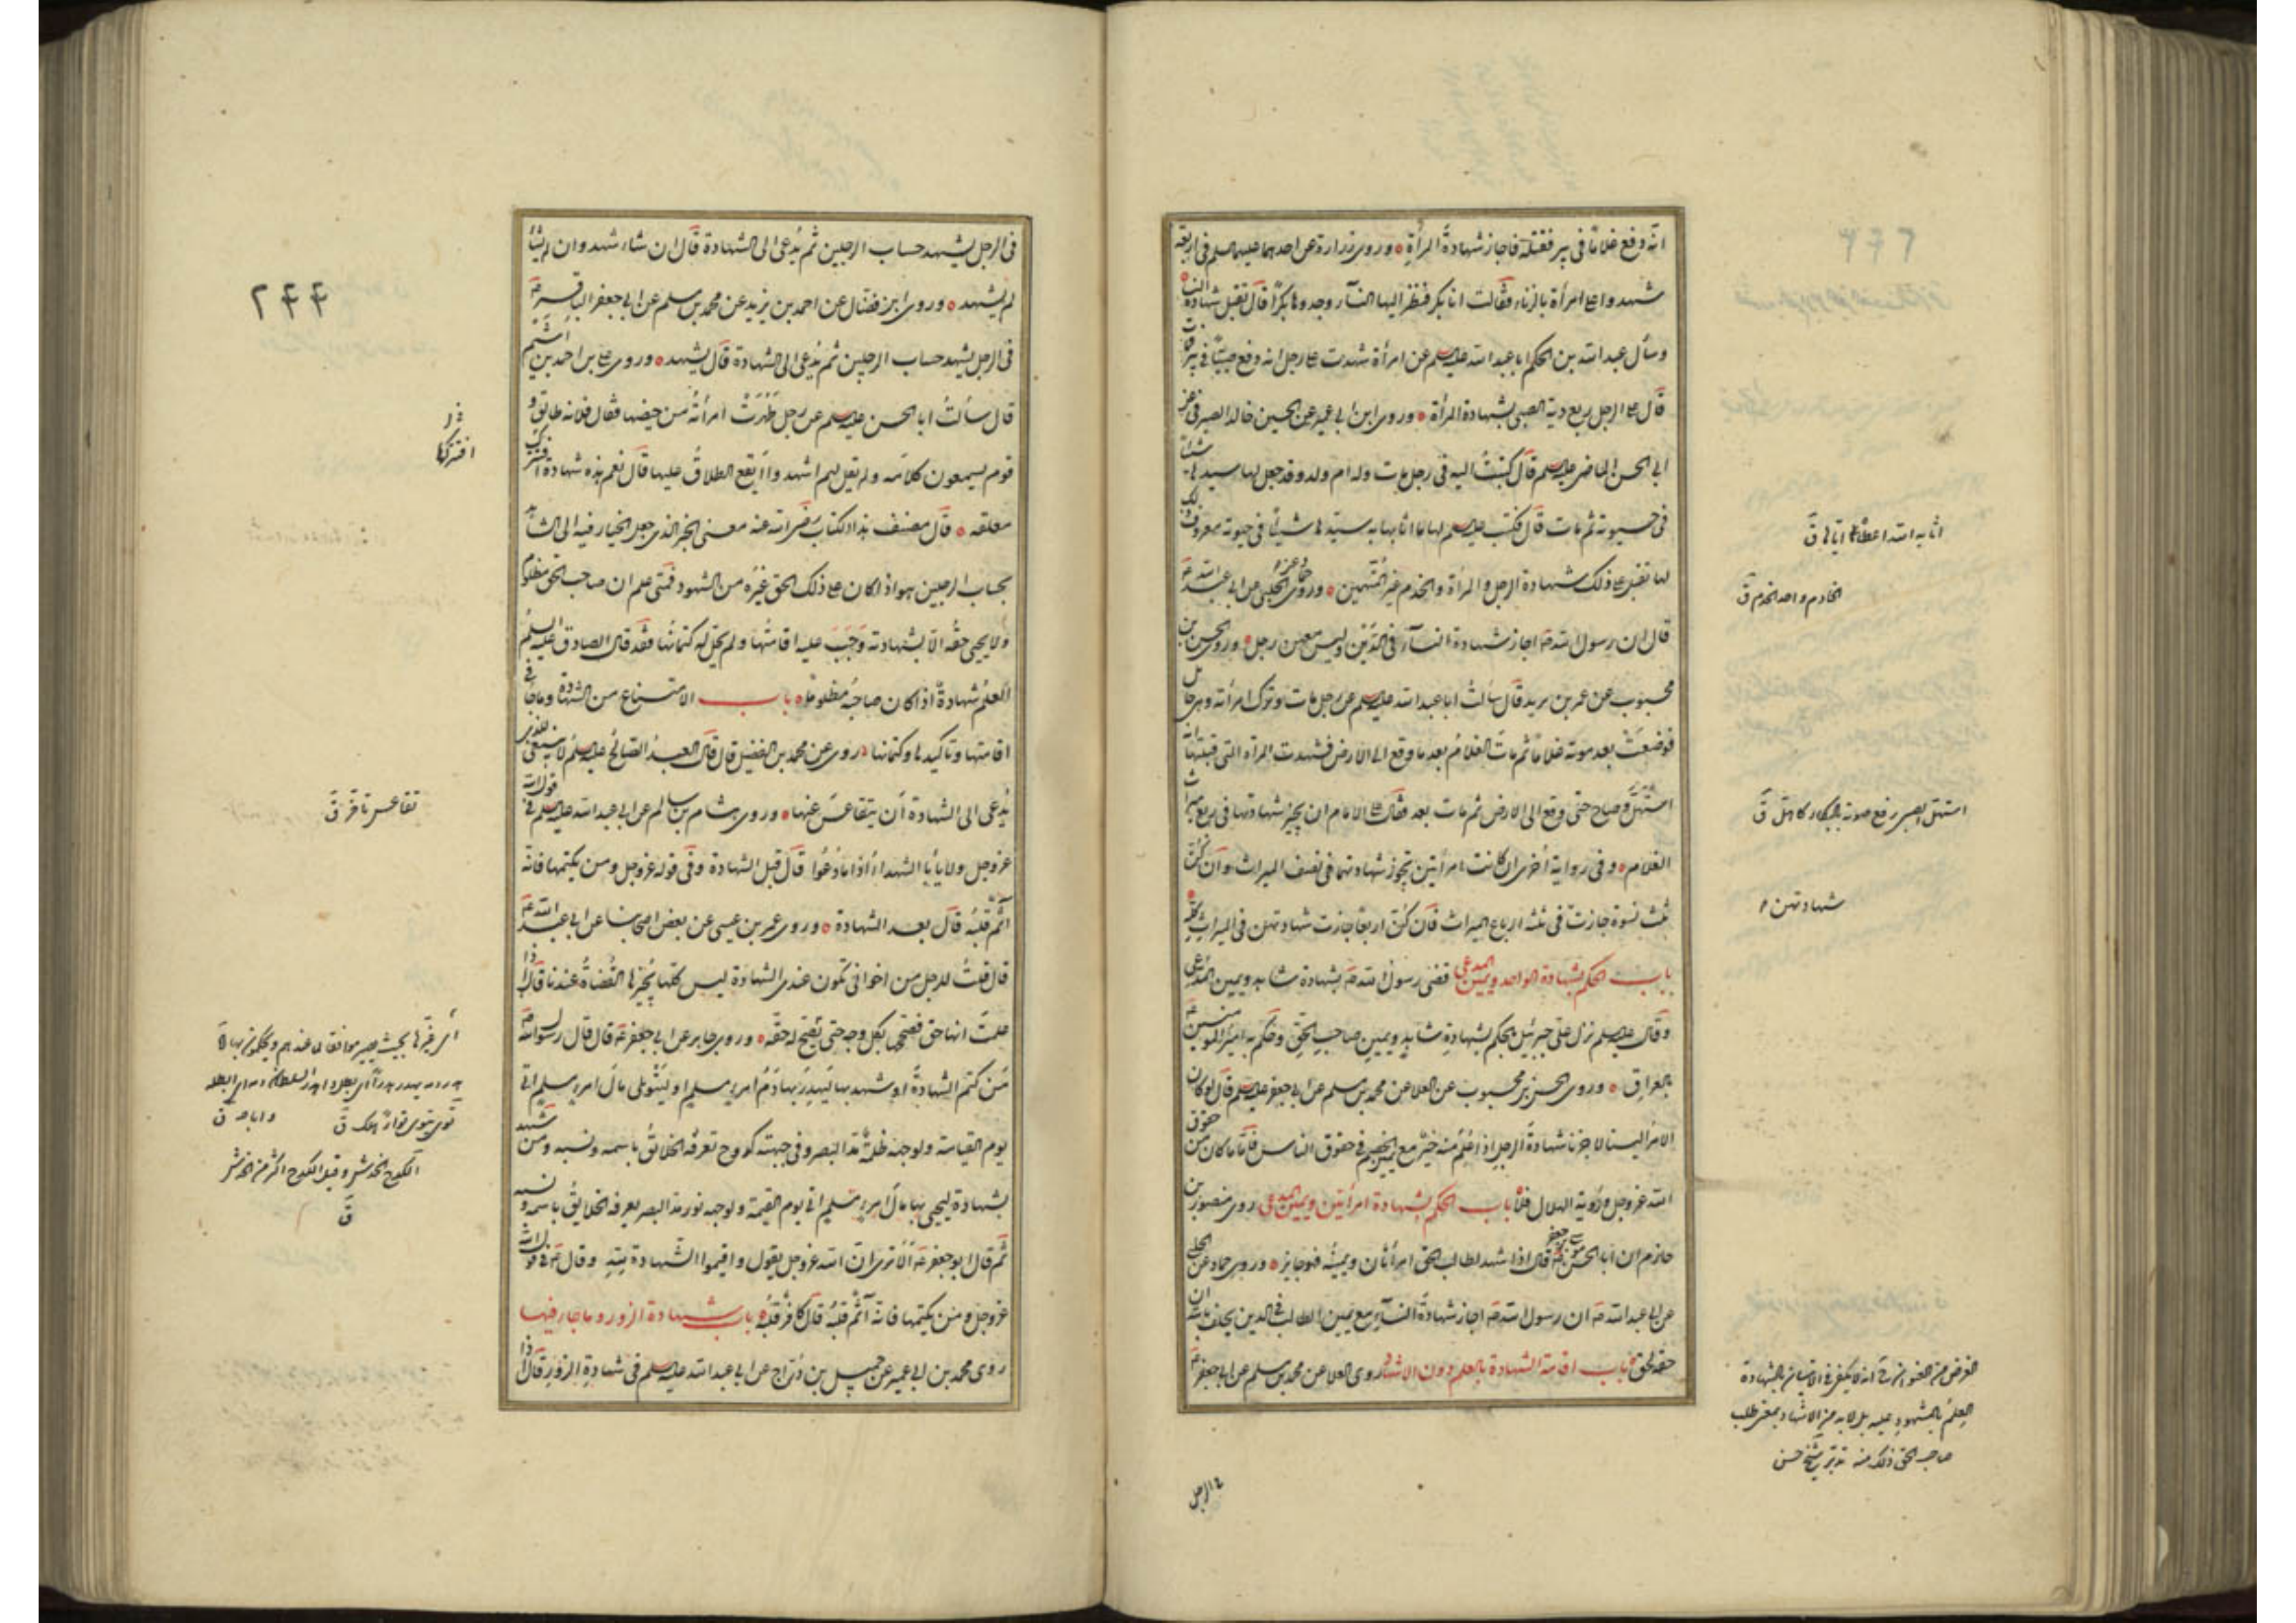 انه دفع غلاما فى بير فقتله فاجاز شهادة المرأة وروى زرارة عن احدهما عليهما السلم فى اربعة
شهدوا على امرأة بالزناء فقالت انا بكر فنظر اليها النسآء وجدوها بكرا قال تقبل شهادة النسآء
وسأل عبد الله بن الحكم ابا عبد الله عليه السلم عن امرأة شهدت على رجل انه دفع صبيا فى بير فمات
قال على الرجل ربع دية الصبى بشهادة المرأة وروى ابن ابى عمير عن الحسين خالد الصيرفى عن
ابى الحسن الماضى عليه السلم قال كتبت اليه فى رجل مات وله ام ولد وقد جعل لها سيدها شيئا
فى حيوته ثم مات قال فكتب عليه السلم لها ما اثابها به سيدها شيئا فى حيوته معروف ذلك
لها تقبل على ذلك شهادة الرجل والمرأة والخدم غير المتهمين وروى الحلبى عن ابى عبد الله ع
قال ان رسول الله ص اجاز شهادة النسآء فى الدين وليس معهن رجل وروى الحسن بن
محبوب عن عمر بن يزيد قال سألت ابا عبد الله عليه السلم عن رجل مات وترك امرأته وهى حامل
فوضعت بعد موته غلاما ثم مات الغلام بعد ما وقع الى الارض فشهدت المرأة التى قبلتها انه
استهل وصاح حتى وقع الى الارض ثم مات بعد فقال على الامام ان يجيز شهادتها فى ربع ميراث
الغلام وفى رواية اخرى ان كانت امرأتين تجوز شهادتهما فى نصف الميراث وان كن
ثلث نسوة جازت فى ثلثة ارباع الميراث فان كن اربعا جازت شهادتهن فى الميراث كله
باب الحكم بشهادة الواحد ويمين المدعى قضى رسول الله ص بشهادة شاهد ويمين المدعى
وقال عليه السلم نزل على جبرئيل بالحكم بشهادة شاهد ويمين صاحب الحق وحكم به امير المؤمنين ع
بالعراق وروى الحسن بن محبوب عن العلا عن محمد بن مسلم عن ابى جعفر عليه السلم قال لو كان
الامر الينا لاجزنا شهادة الرجل اذا علم منه خير مع يمين الخصم فى حقوق الناس فاما ما كان من حقوق
الله عز وجل ورؤية الهلال فلا باب الحكم بشهادة امرأتين ويمين المدعى روى منصور بن
حازم ان ابا الحسن موسى بن جعفر ع قال اذا شهد لطالب الحق امرأتان ويمينه فهو جايز وروى حماد عن الحلبى
عن ابى عبد الله ع ان رسول الله ص اجاز شهادة النسآء مع يمين الطالب فى الدين يحلف بالله ان
حقه لحق باب اقامة الشهادة بالعلم دون الاشهاد روى العلا عن محمد بن مسلم عن ابى جعفر ع
اثابه الله اعطاه اياها ق
الخادم واحد الخدم ق
استهل الصبى رفع صوته بالبكاء كاهل ق
شهادتهن
العلم بالمشهود عليه بل لا بد من الاشهاد بمعنى طلب
صاحب الحق ذلك منه
فى الرجل
فى الرجل يشهد حساب الرجلين ثم يدعى الى الشهادة قال ان شاء شهد وان لم يشأ
لم يشهد وروى ابن فضال عن احمد بن يزيد عن محمد بن مسلم عن ابى جعفر الباقر ع
فى الرجل يشهد حساب الرجلين ثم يدعى الى الشهادة قال يشهد وروى على بن احمد بن اشيم
قال سألت ابا الحسن عليه السلم عن رجل طهرت امرأته من حيضها فقال فلانه طالق و
قوم يسمعون كلامه ولم يقل لهم اشهدوا ايقع الطلاق عليها قال نعم هذه شهادة افتترك
معلقه قال مصنف هذا الكتاب رضى الله عنه معنى الخبر الذى جعل الخيار فيه الى الشاهد
بحساب الرجلين هو اذا كان على ذلك الحق غيره من الشهود فمتى علم ان صاحب الحق مظلوم
ولا يحيى حقه الا بشهادته وجبت عليه اقامتها ولم يحل له كتمانها فقد قال الصادق عليه السلم
العلم شهادة اذا كان صاحبه مظلوما باب الامتناع من الشهادة وما جاء فى
اقامتها وتأكيدها وكتمانها روى عن محمد بن الفضيل قال قال العبد الصالح عليه السلم لا ينبغى للذى
يدعى الى الشهادة ان يتقاعس عنها وروى هشام بن سالم عن ابى عبد الله عليه السلم فى قول الله
عز وجل ولا يأبا الشهداء اذا ما دعوا قال قبل الشهادة وفى قوله عز وجل ومن يكتمها فانه
آثم قلبه قال بعد الشهادة وروى عمر بن عيسى عن بعض اصحابنا عن ابى عبد الله ع
قال قلت للرجل من اخوانى تكون عندى الشهادة ليس كلها يجيزها القضاة عندنا قال اذا
علمت انها حق فصححها بكل وجه حتى يصح له حقه وروى جابر عن ابى جعفر ع قال قال رسول الله ص
من كتم الشهادة او شهد بها ليهدر بها دم امرء مسلم او ليتوى مال امرء مسلم اتى
يوم القيامة ولوجهه ظلمة مد البصر وفى وجهه كدوح تعرفه الخلائق باسمه ونسبه ومن شهد
بشهادة ليحيى بها مال امرء مسلم اتى يوم القيمة ولوجهه نور مد البصر يعرفه الخلايق باسمه ونسبه
ثم قال ابو جعفر ع ألا ترى ان الله عز وجل يقول واقيموا الشهادة لله وقال ع فى قول الله
عز وجل ومن يكتمها فانه آثم قلبه قال كافر قلبه باب شهادة الزور وما جاء فيها
روى محمد بن ابى عمير عن جميل بن دراج عن ابى عبد الله عليه السلم فى شهادة الزور قال اذا
۲۴۴
افتتركها
تقاعس تاخر ق
توى يتوى توا هلك ق
الكدوح الخدوش وقيل الكدوح اكثر من الخدوش
ق